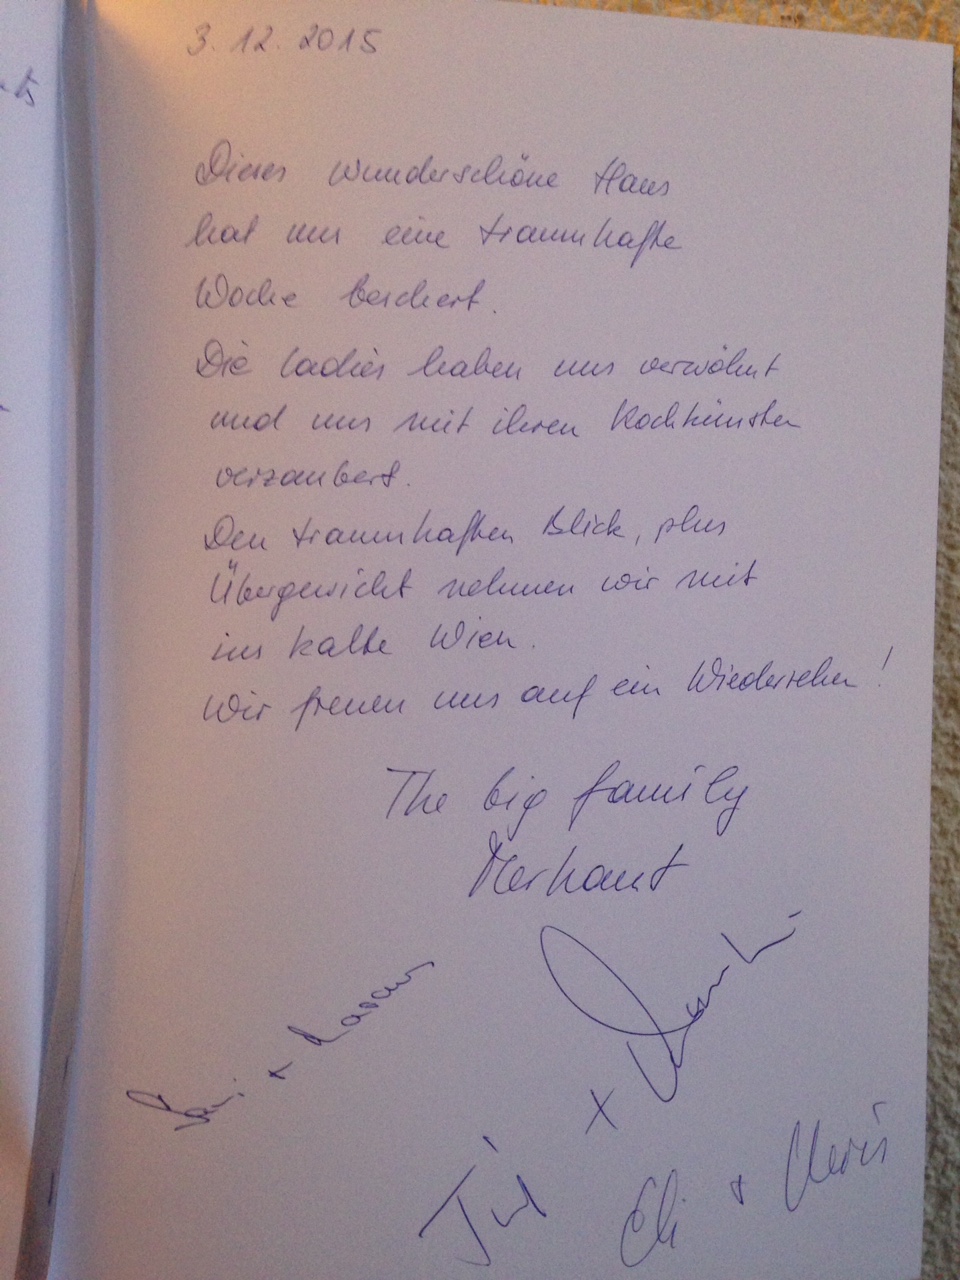 3.12.2015
Dieses wunderschöne Haus
hat uns eine traumhafte
Woche beschert.
Die Ladies haben uns verwöhnt
und uns mit ihren Kochkünsten
verzaubert.
Den traumhaften Blick, plus
Übergewicht nehmen wir mit
ins kalte Wien.
Wir freuen uns auf ein Wiedersehen!
The big family
Merhaut
+
+
Eli + Chris